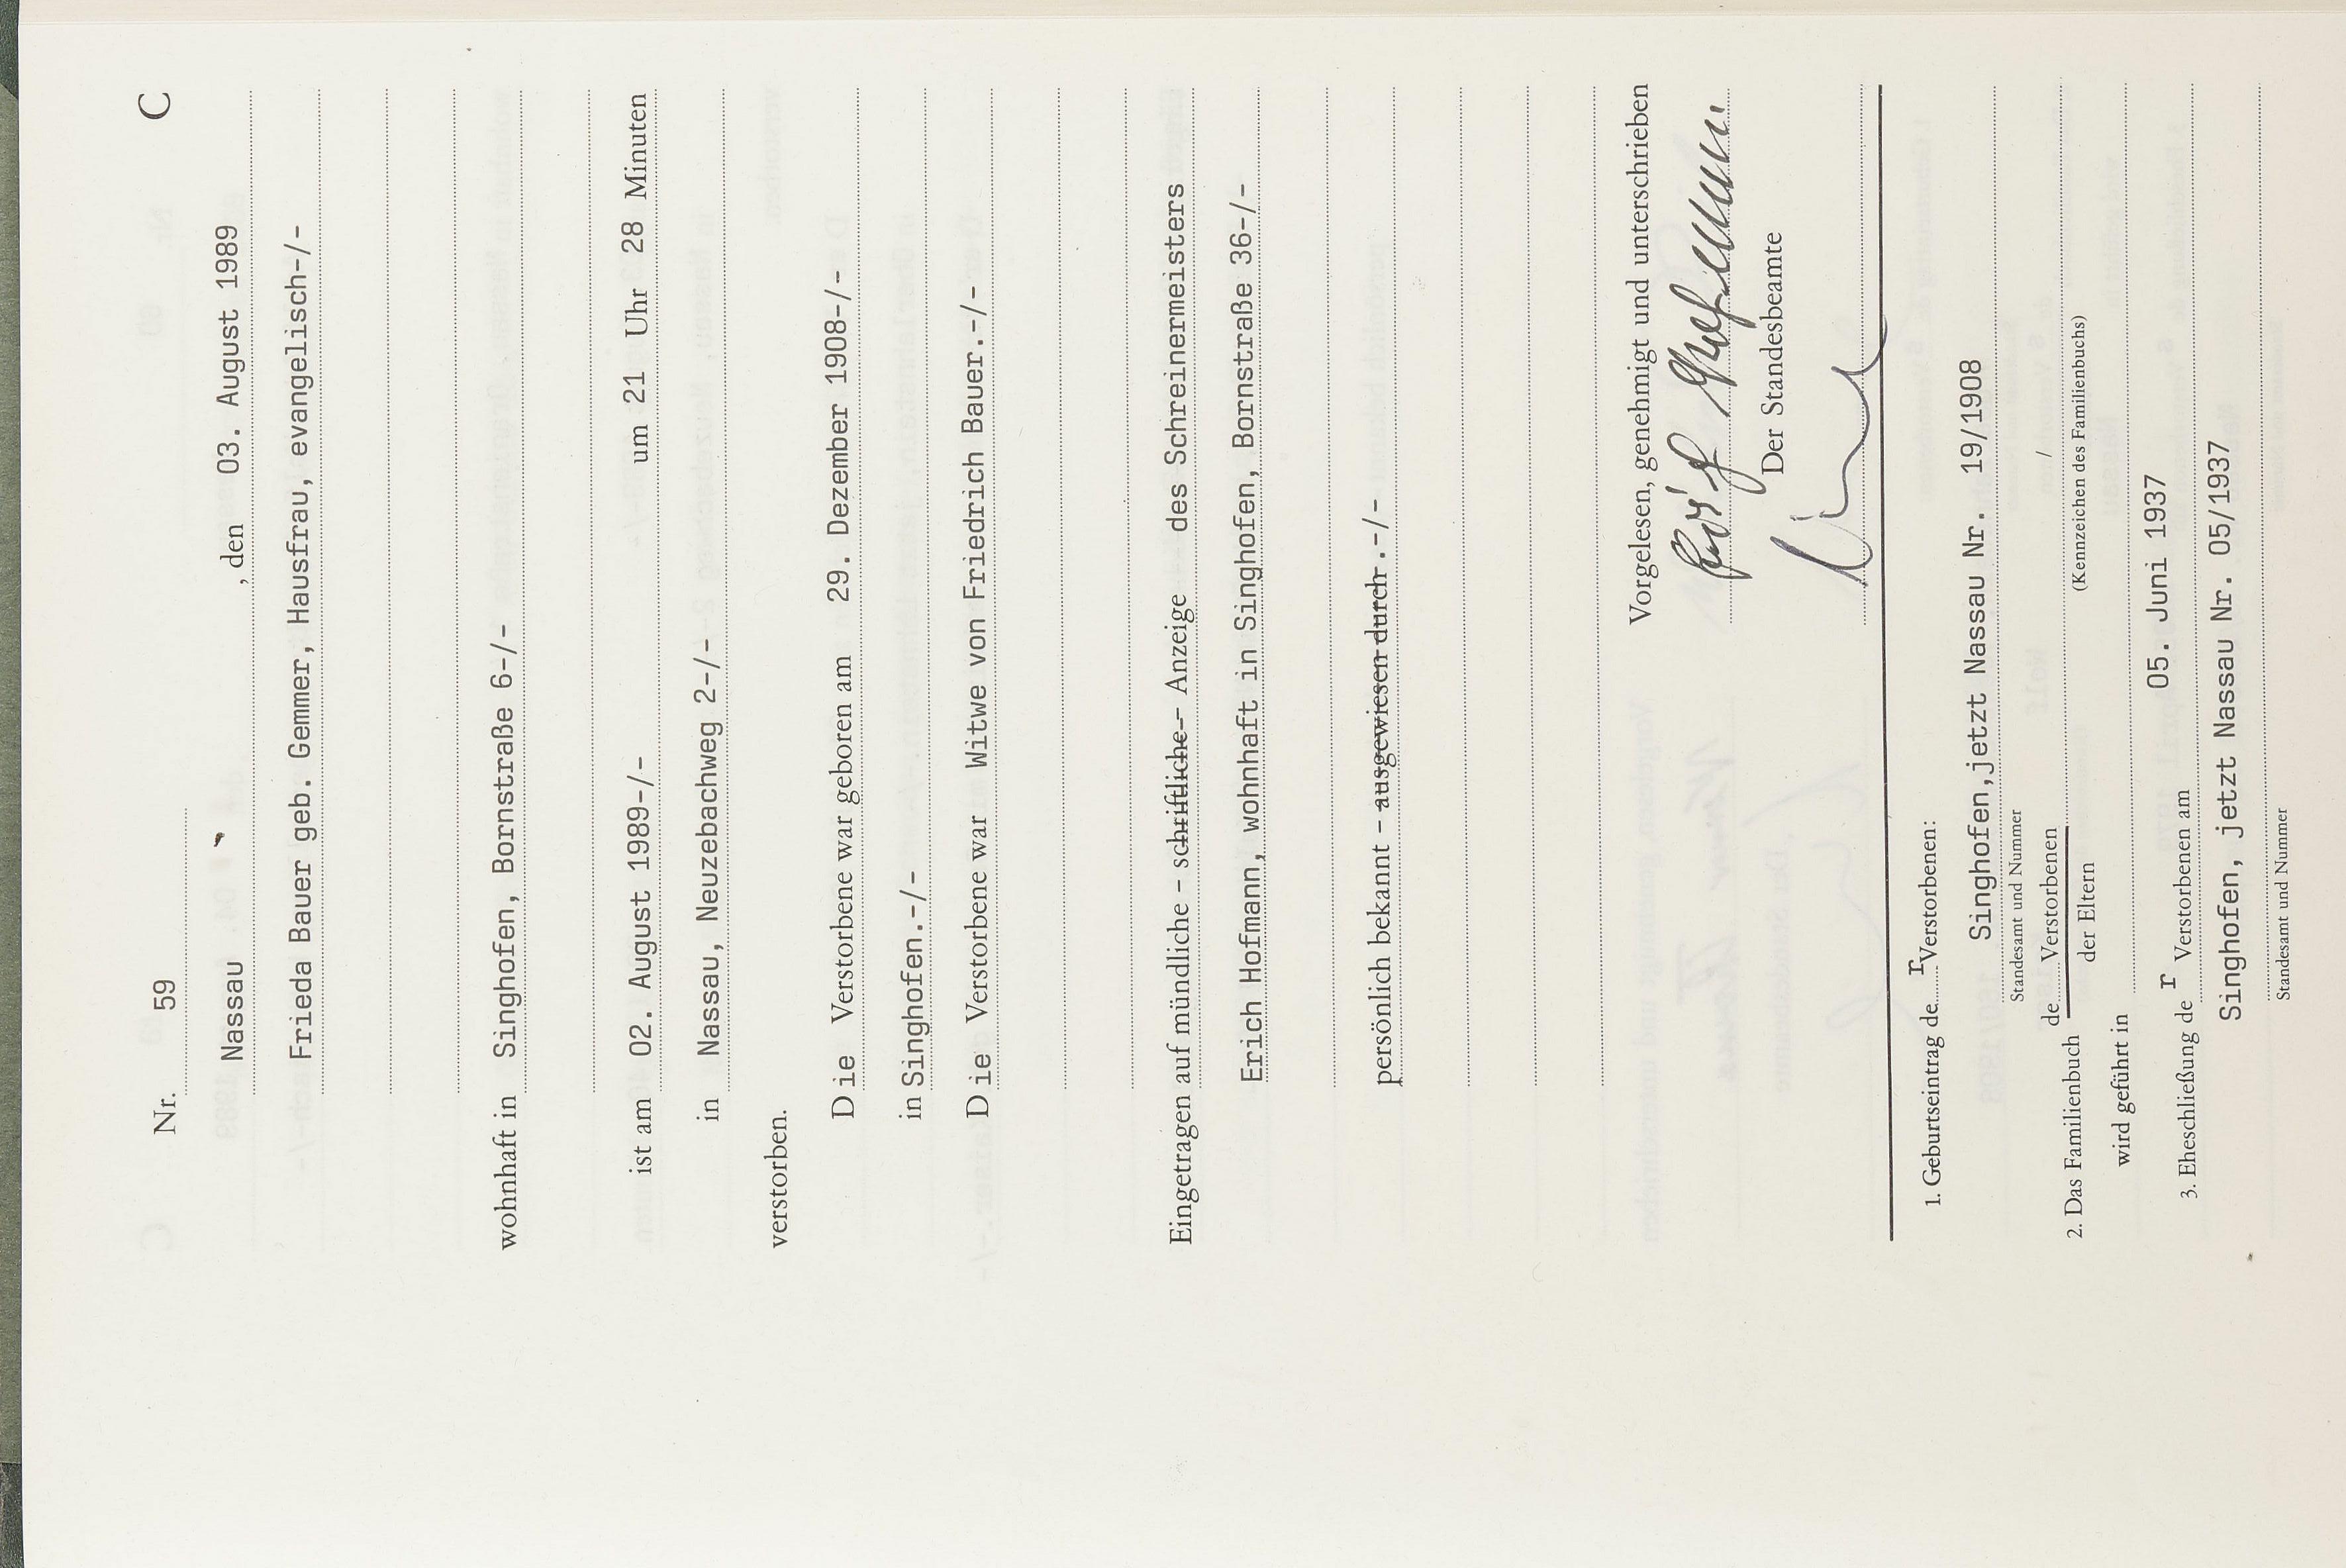 Nr. 59 C
Nassau , den 03. August 1989
Frieda Bauer geb. Gemmer, Hausfrau, evangelisch-/-
wohnhaft in Singhofen, Bornstraße 6-/-
ist am 02. August 1989-/- um 21 Uhr 28 Minuten
in Nassau, Neuzebachweg 2-/-
verstorben.
Die Verstorbene war geboren am 29. Dezember 1908-/-
in Singhofen.-/-
Die Verstorbene war Witwe von Friedrich Bauer.-/-
Eingetragen auf mündliche - schriftliche - Anzeige des Schreinermeisters
Erich Hofmann, wohnhaft in Singhofen, Bornstraße 36-/-
persönlich bekannt - ausgewiesen durch .-/-
Vorgelesen, genehmigt und unterschrieben
Der Standesbeamte
1. Geburtseintrag der Verstorbenen:
Singhofen,jetzt Nassau Nr. 19/1908
Standesamt und Nummer
de Verstorbenen /
2. Das Familienbuch
der Eltern (Kennzeichen des Familienbuchs)
wird geführt in
3. Eheschließung der Verstorbenen am 05. Juni 1937
Singhofen, jetzt Nassau Nr. 05/1937
Standesamt und Nummer